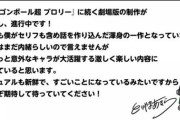 ゴンボール超 ブロリー』に続く劇場版の制作が
し、進行中です！
も僕がセリフも含め話を作り込んだ渾身の一作となってい
はまだ内緒らしいので言えませんが
っと意外なキャラが大活躍する激しく楽しい内容に
ていると思います。
ジュアルも新鮮で、すごいことになっているみたいですから
ぜひ期待して待っていてください！